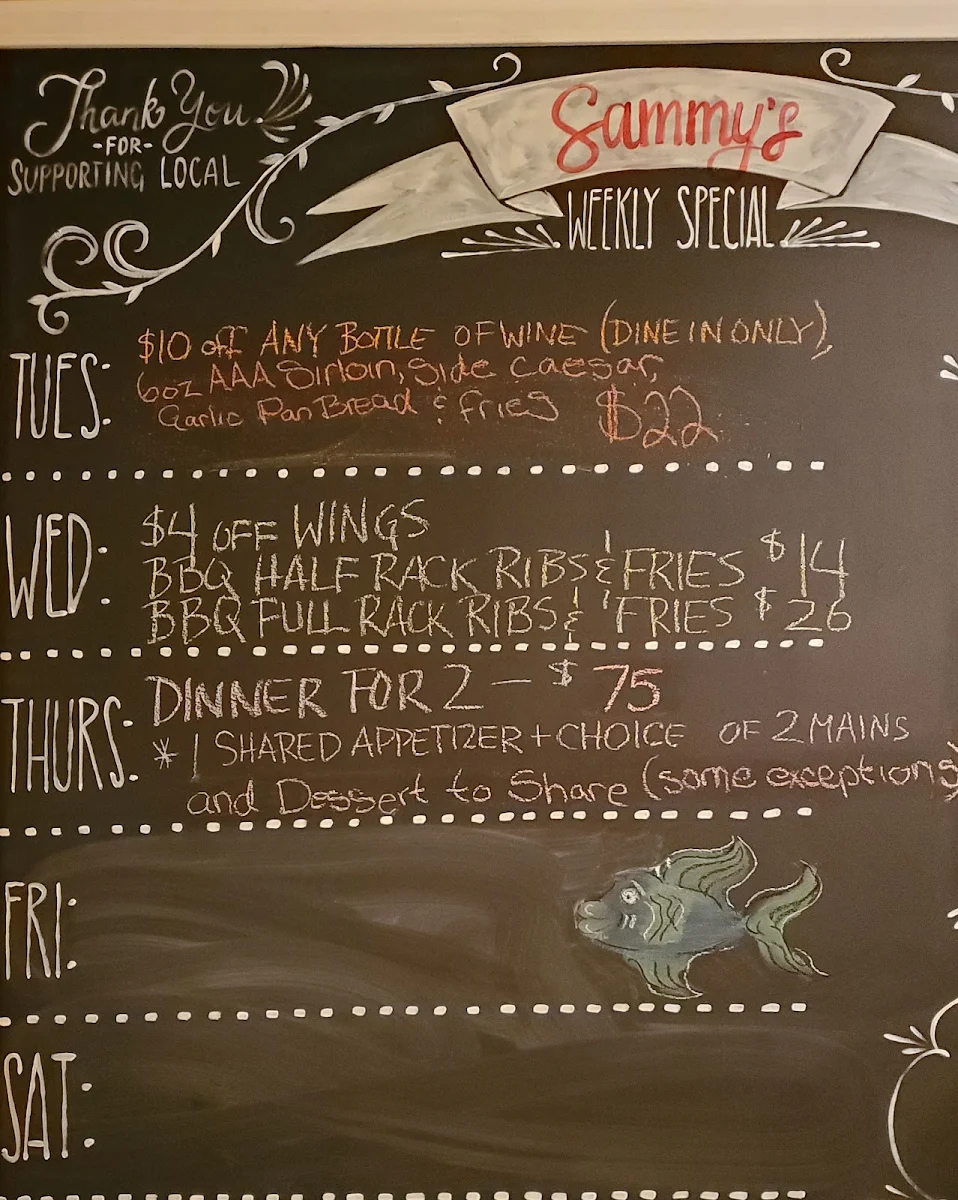 Thank You
-FOR-
SUPPORTING LOCAL
Sammy's
WEEKLY SPECIAL
TUES:
$10 off ANY BOTTLE OF WINE (DINE IN ONLY),
6oz AAA Sirloin, Side Caesar,
Garlic Pan Bread & fries $22
WED:
$4 OFF WINGS
BBQ HALF RACK RIBS & FRIES $14
BBQ FULL RACK RIBS & FRIES $26
THURS:
DINNER FOR 2 — $75
* 1 SHARED APPETIZER + CHOICE OF 2 MAINS
and Dessert to Share (some exceptions)
FRI:
SAT: